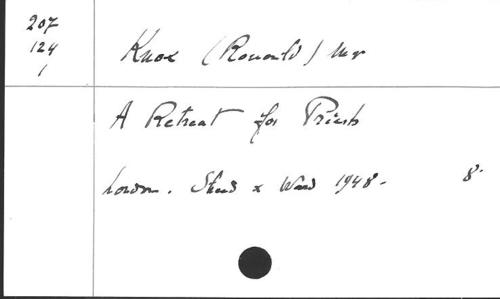 207
124
1
Knox (Ronald) Mgr
A Retreat for Priests
London. Sheed & Ward 1948.
8°